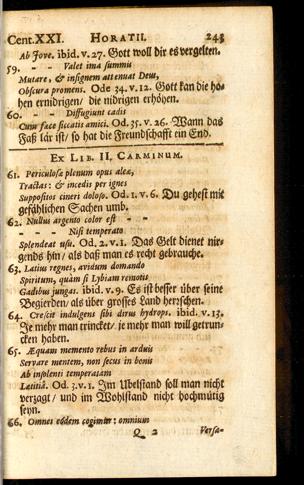 Cent. XXI. HORATII. 243
Ab Jove. ibid. v. 27. Gott woll dir es vergelten.
59. - - Valet ima summis
Mutare, & insignem attenuat Deus,
Obscura promens. Ode 34. v. 12. Gott kan die ho-
hen ernidrigen/ die nidrigen erhöhen.
60. - - Diffugiunt cadis
Cum fæce siccatis amici. Od. 35. v. 26. Wann das
Faß lär ist/ so hat die Freundschafft ein End.
EX LIB. II. CARMINUM.
61. Periculosæ plenum opus aleæ,
Tractas: & incedis per ignes
Suppositos cineri doloso. Od. 1. v. 6. Du gehest mit
gefählichen Sachen umb.
62. Nullus argento color est - -
- - Nisi temperato
Splendeat usu. Od. 2. v. 1. Das Gelt dienet nir-
gends hin/ als daß man es recht gebrauche.
63. Latius regnes, avidum domando
Spiritum, quàm si Lybiam remotis
Gadibus jungas. ibid. v. 9. Es ist besser über seine
Begierden/ als über grosses Land herrschen.
64. Crescit indulgens sibi dirus hydrops. ibid. v. 13.
Je mehr man trincket/ je mehr man will getrun-
cken haben.
65. Æquam memento rebus in arduis
Servare mentem, non secus in bonis
Ab insolenti temperatam
Lætitiâ. Od. 3. v. 1. Im Ubelstand soll man nicht
verzagt/ und im Wohlstand nicht hochmütig
seyn.
66. Omnes eôdem cogimur: omnium
Q 2 Versa-